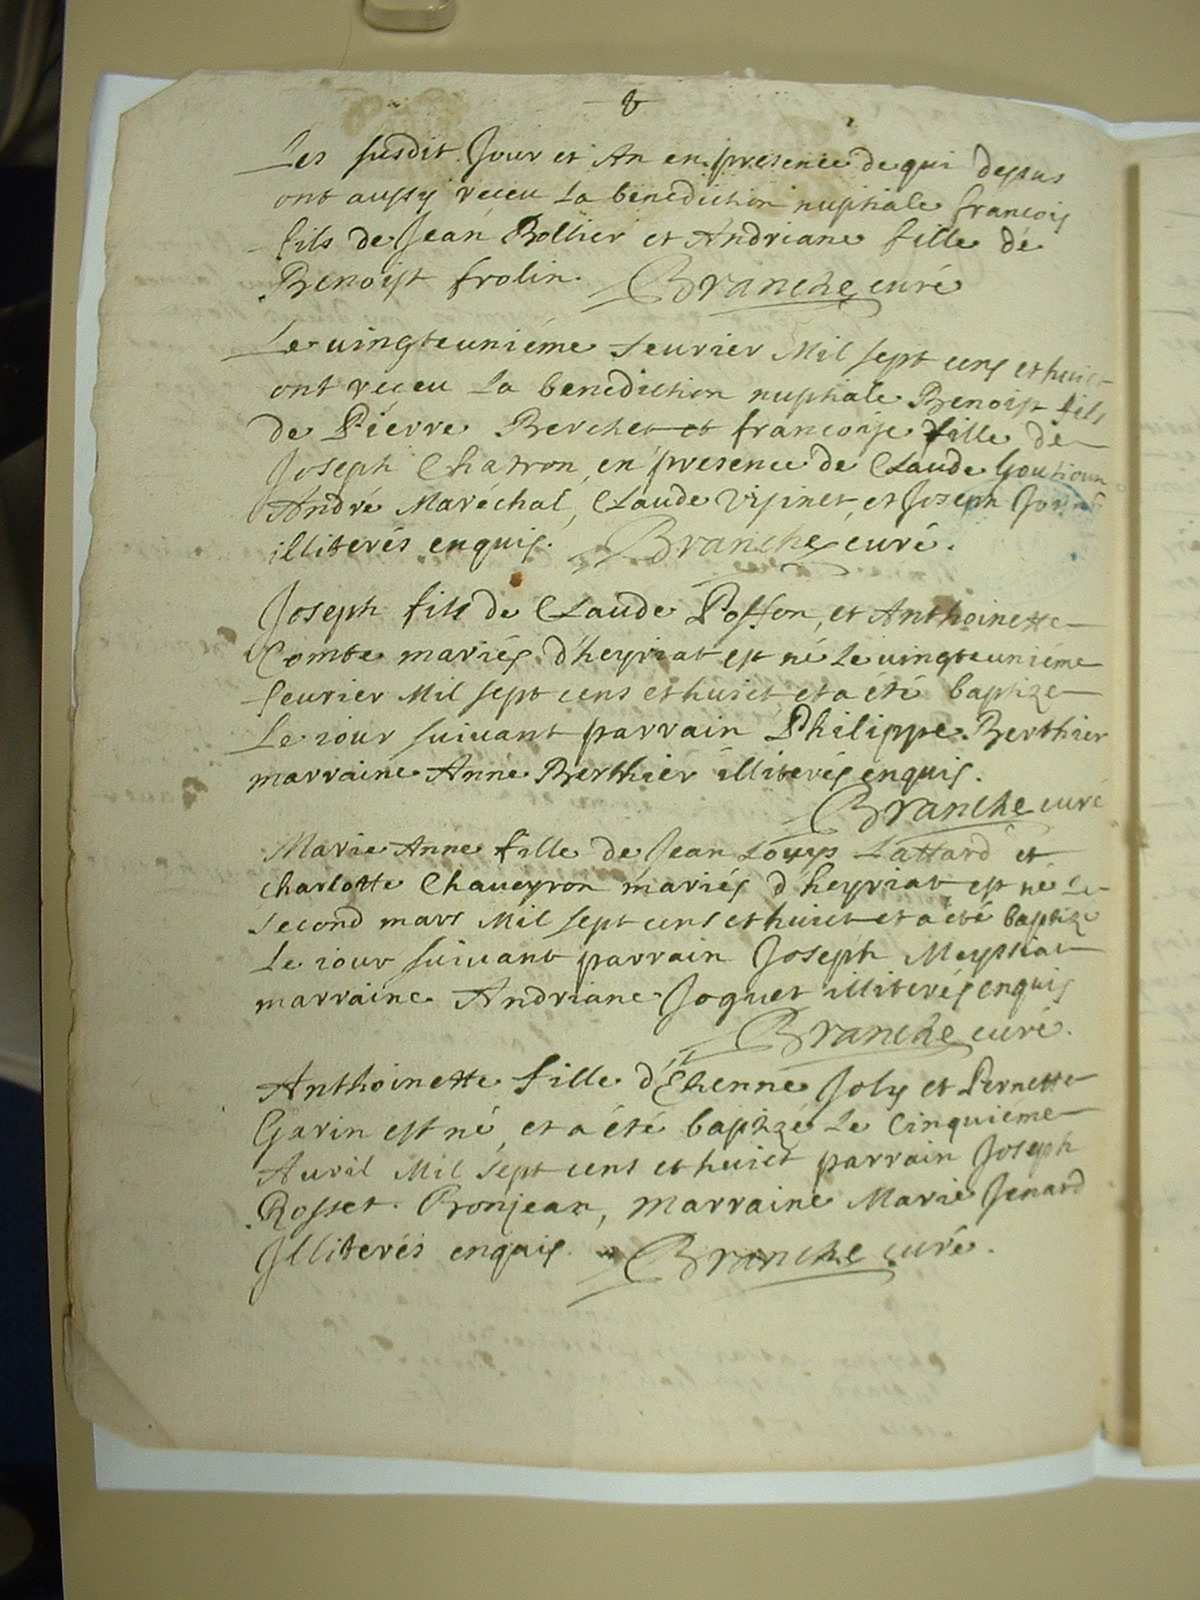 8
Les susdit Jour et An en presence de qui dessus
ont aussy receu La benediction nuptiale francois
fils de Jean Bollier et Andriane fille de
Benoist frolin. Branche curé
Le vingteuniéme feurier Mil sept cens et huict
ont receu La benediction nuptiale Benoist fils
de Pierre Berchet et francoise fille de
Joseph Chatron en presence de Claude
André Maréchal, Claude Visinet, et Joseph
illiterés enquis. Branche curé.
Joseph fils de Claude Posson, et Anthoinette
Combe mariés d'heyriat est né Le vingteuniéme
feurier Mil sept cens et huict et a été baptize
Le iour suiuant parrain Philippe Berthier
marraine Anne Berthier illiterés enquis.
Branche curé
Marie Anne fille de Jean Louys Lattard et
Charlotte Chaueyron mariés d'heyriat est né Le
second mars Mil sept cens et huict et a été baptize
Le iour suiuant parrain Joseph Meyniat
marraine Andriane Joquet illiterés enquis
Branche curé.
Anthoinette fille d'Etienne Joly et Pernette
Garin est né, et a été baptizé Le Cinquieme
Auril Mil sept cens et huict parrain Joseph
Rosset Bonjean, marraine Marie Jenard
Jlliterés enquis Branche curé.